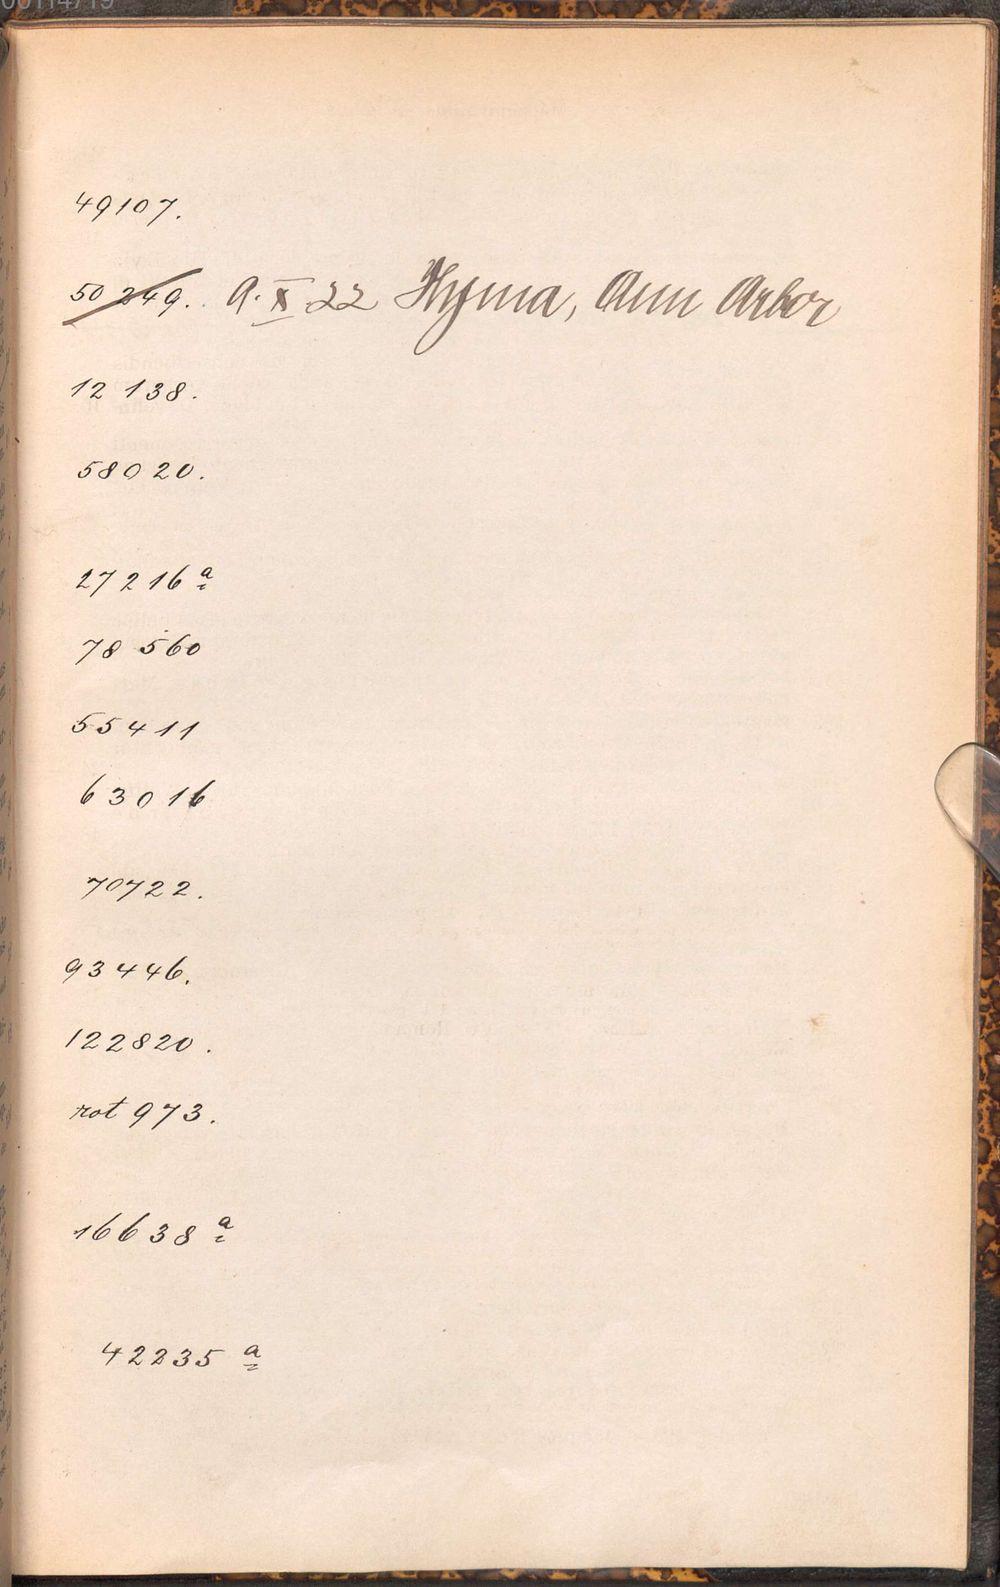 00114719
49107.
50 249. a. X 22 Hyma, Ann Arbor
12 138.
58020.
27216 a
78 560
55411
63016
70722.
93446.
122820.
rot 973.
16638 a
42235 a